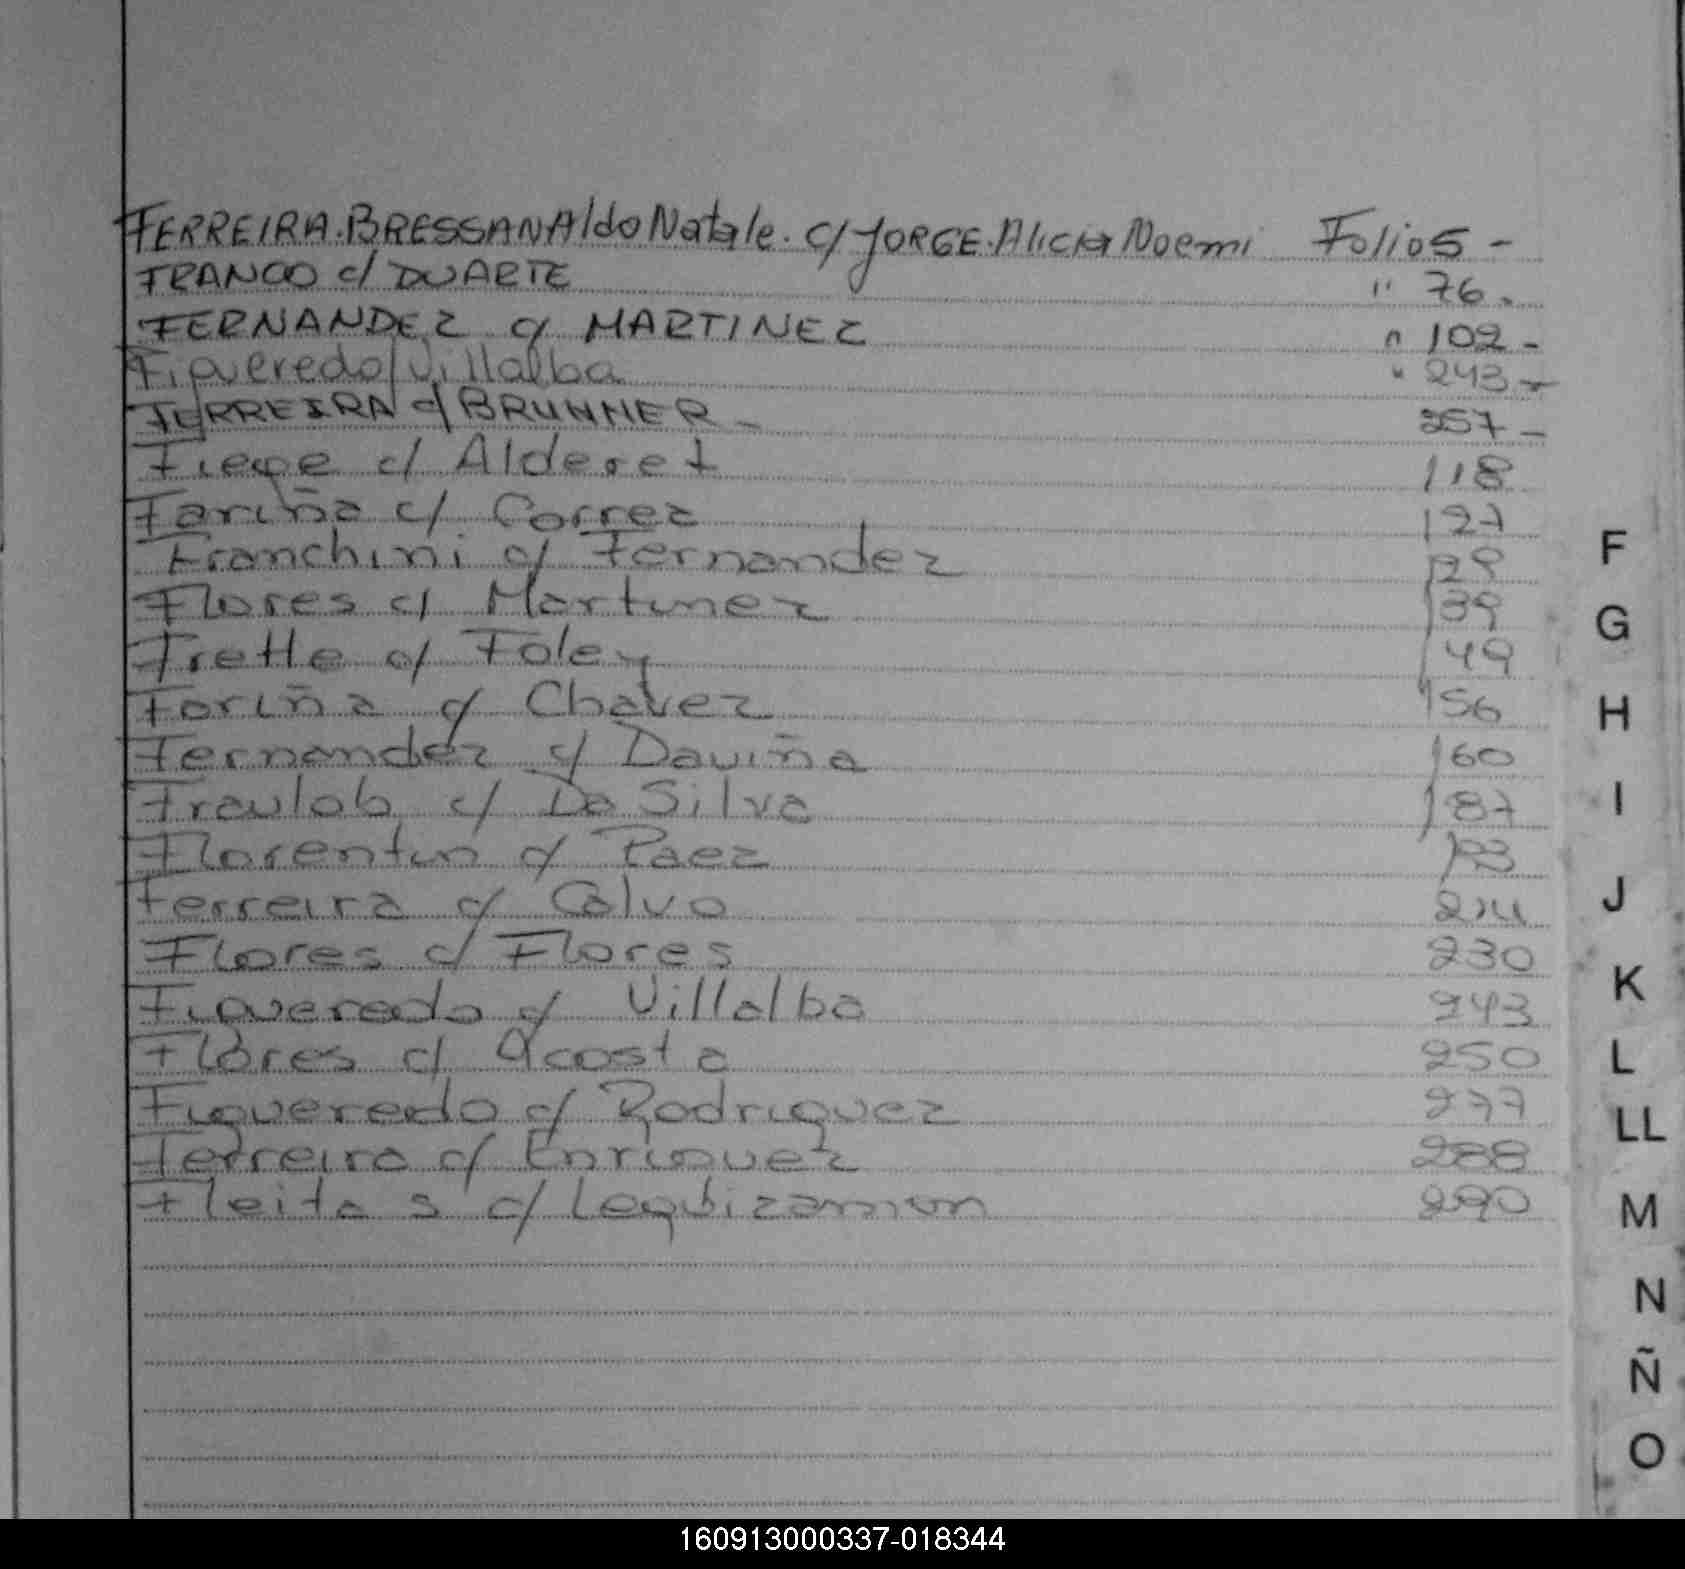 FERREIRA.BRESSAN Aldo Natale. c/ JORGE.Alicia Noemi Folio 5 -
FRANCO c/ DUARTE " 76.
FERNANDEZ c/ MARTINEZ " 102 -
Figueredo/Villalba " 243 -
FERREIRA c/ BRUNNER - 257 -
Fiege c/ Alderet 118
Fariña c/ Correa 127
Franchini c/ Fernandez 129
Flores c/ Martinez 139
Frette c/ Foley 149
Fariña c/ Chavez 156
Fernandez c/ Daviña 160
Fraulob c/ Da Silva 187
Florentin c/ Paez 193
Ferreira c/ Calvo 214
Flores c/ Flores 230
Figueredo c/ Villalba 243
Flores c/ Acosta 250
Figueredo c/ Rodriguez 277
Ferreira c/ Enriquez 288
Fleitas c/ Leguizamon 290
F
G
H
I
J
K
L
LL
M
N
Ñ
O
160913000337-018344